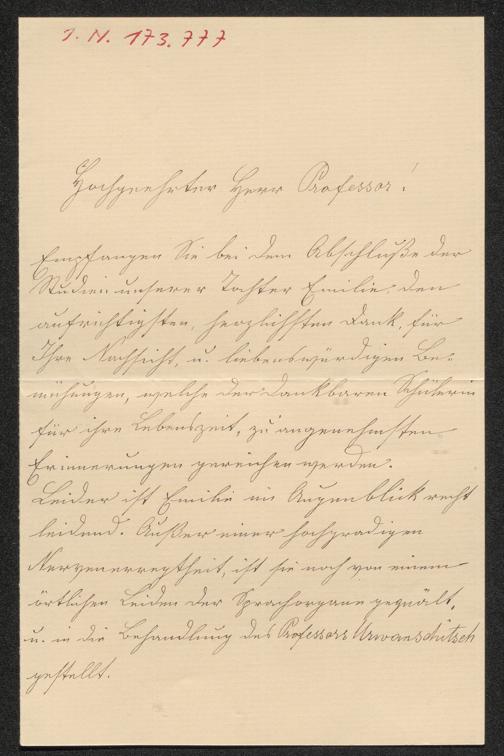 I. N. 173.777
Hochgeehrter Herr Professor!
Empfangen Sie bei dem Abschluße der
Studien unserer Tochter Emilie, den
aufrichtigsten, herzlichsten Dank, für
Ihre Nachsicht, u. liebenswürdigen Be-
mühungen, welche der dankbaren Schülerin
für ihre Lebenszeit, zu angenehmsten
Erinnerungen gereichen werden.
Leider ist Emilie im Augenblick recht
leidend. Außer einer hochgradigen
Nervenerregtheit, ist sie noch von einem
örtlichen Leiden der Sprachorgane gequält,
u. in die Behandlung des Professors Urwanschitsch
gestellt.